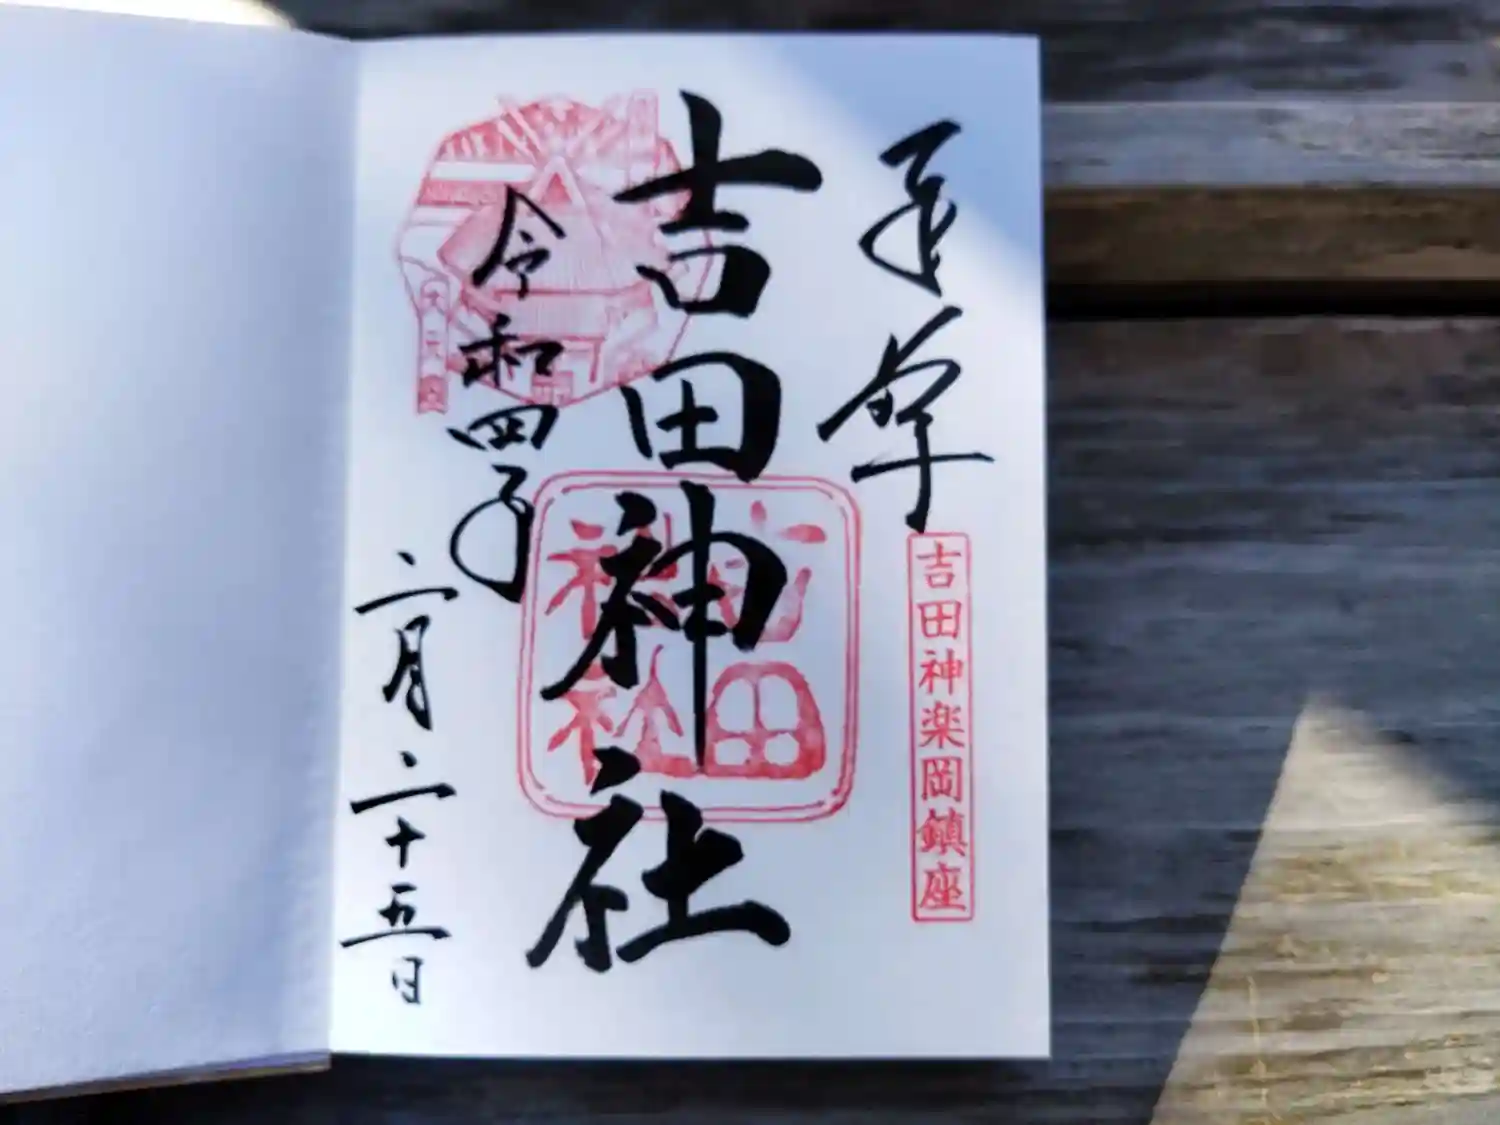 吉田神楽岡鎮座
吉田神社
吉田
神社
令和四年
二月二十五日
大元宮